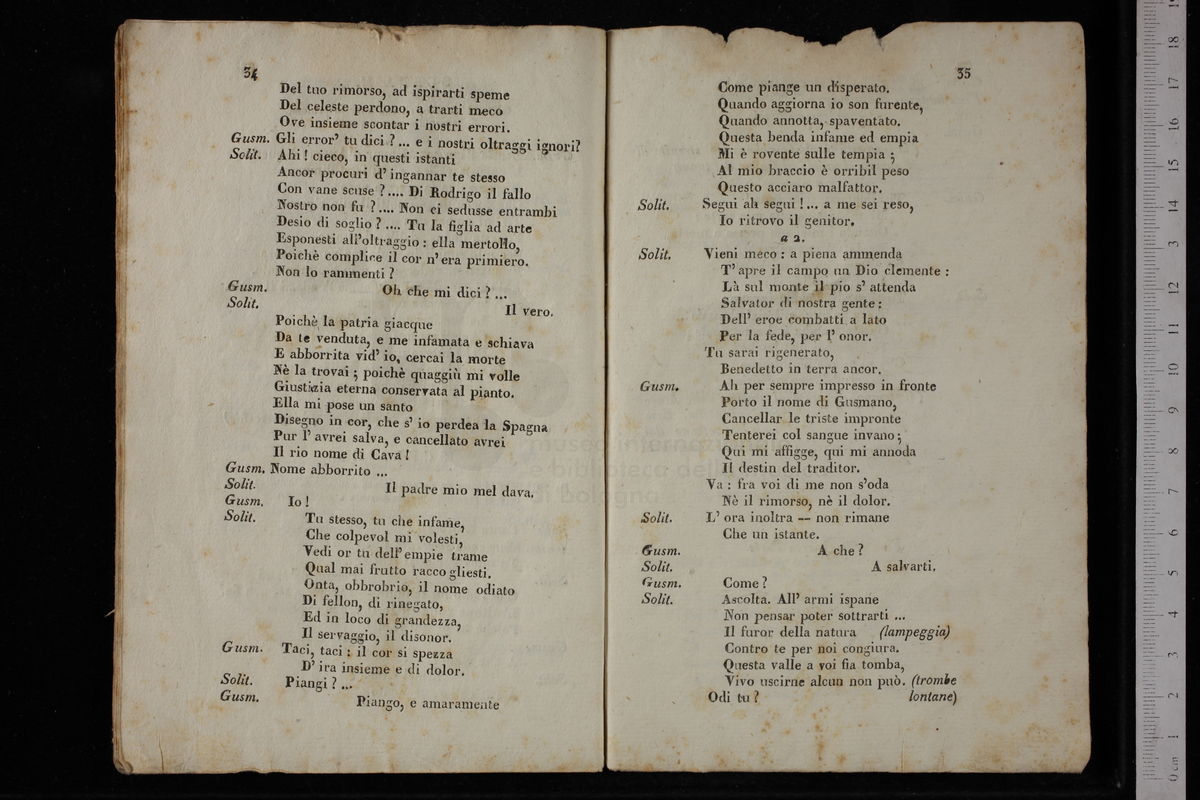 34
Del tuo rimorso, ad ispirarti speme
Del celeste perdono, a trarti meco
Ove insieme scontar i nostri errori.
Gusm. Gli error' tu dici ?... e i nostri oltraggi ignori?
Solit. Ahi ! cieco, in questi istanti
Ancor procuri d' ingannar te stesso
Con vane scuse ?.... Di Rodrigo il fallo
Nostro non fu ?.... Non ci sedusse entrambi
Desio di soglio ? .... Tu la figlia ad arte
Esponesti all'oltraggio : ella mertollo,
Poichè complice il cor n' era primiero.
Non lo rammenti ?
Gusm. Oh che mi dici ? ...
Solit. Il vero.
Poichè la patria giacque
Da te venduta, e me infamata e schiava
E abborrita vid' io, cercai la morte
Nè la trovai ; poichè quaggiù mi volle
Giustizia eterna conservata al pianto.
Ella mi pose un santo
Disegno in cor, che s' io perdea la Spagna
Pur l' avrei salva, e cancellato avrei
Il rio nome di Cava !
Gusm. Nome abborrito ...
Solit. Il padre mio mel dava.
Gusm. Io !
Solit. Tu stesso, tu che infame,
Che colpevol mi volesti,
Vedi or tu dell' empie trame
Qual mai frutto racco gliesti.
Onta, obbrobrio, il nome odiato
Di fellon, di rinegato,
Ed in loco di grandezza,
Il servaggio, il disonor.
Gusm. Taci, taci : il cor si spezza
D' ira insieme e di dolor.
Solit. Piangi ? ...
Gusm. Piango, e amaramente
35
Come piange un disperato.
Quando aggiorna io son furente,
Quando annotta, spaventato.
Questa benda infame ed empia
Mi è rovente sulle tempia ;
Al mio braccio è orribil peso
Questo acciaro malfattor.
Solit. Segui ah segui !... a me sei reso,
Io ritrovo il genitor.
a 2.
Solit. Vieni meco : a piena ammenda
T' apre il campo un Dio clemente :
Là sul monte il pio s' attenda
Salvator di nostra gente :
Dell' eroe combatti a lato
Per la fede, per l' onor.
Tu sarai rigenerato,
Benedetto in terra ancor.
Gusm. Ah per sempre impresso in fronte
Porto il nome di Gusmano,
Cancellar le triste impronte
Tenterei col sangue invano ;
Qui mi affigge, qui mi annoda
Il destin del traditor.
Va : fra voi di me non s'oda
Nè il rimorso, nè il dolor.
Solit. L' ora inoltra — non rimane
Che un istante.
Gusm. A che ?
Solit. A salvarti.
Gusm. Come ?
Solit. Ascolta. All' armi ispane
Non pensar poter sottrarti ...
Il furor della natura (lampeggia)
Contro te per noi congiura.
Questa valle a voi fia tomba,
Vivo uscirne alcun non può. (trombe
Odi tu ? lontane)